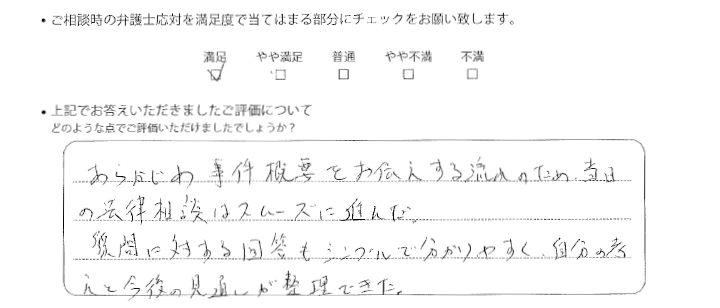 • ご相談時の弁護士応対を満足度で当てはまる部分にチェックをお願い致します。
満足 やや満足 普通 やや不満 不満
☑ □ □ □ □
• 上記でお答えいただきましたご評価について
どのような点でご評価いただけましたでしょうか？
あらかじめ 事件概要をお伝えする流れのため、当日
の法律相談はスムーズに進んだ。
質問に対する回答もシンプルで分かりやすく、自分の考
えと今後の見通しが整理できた。